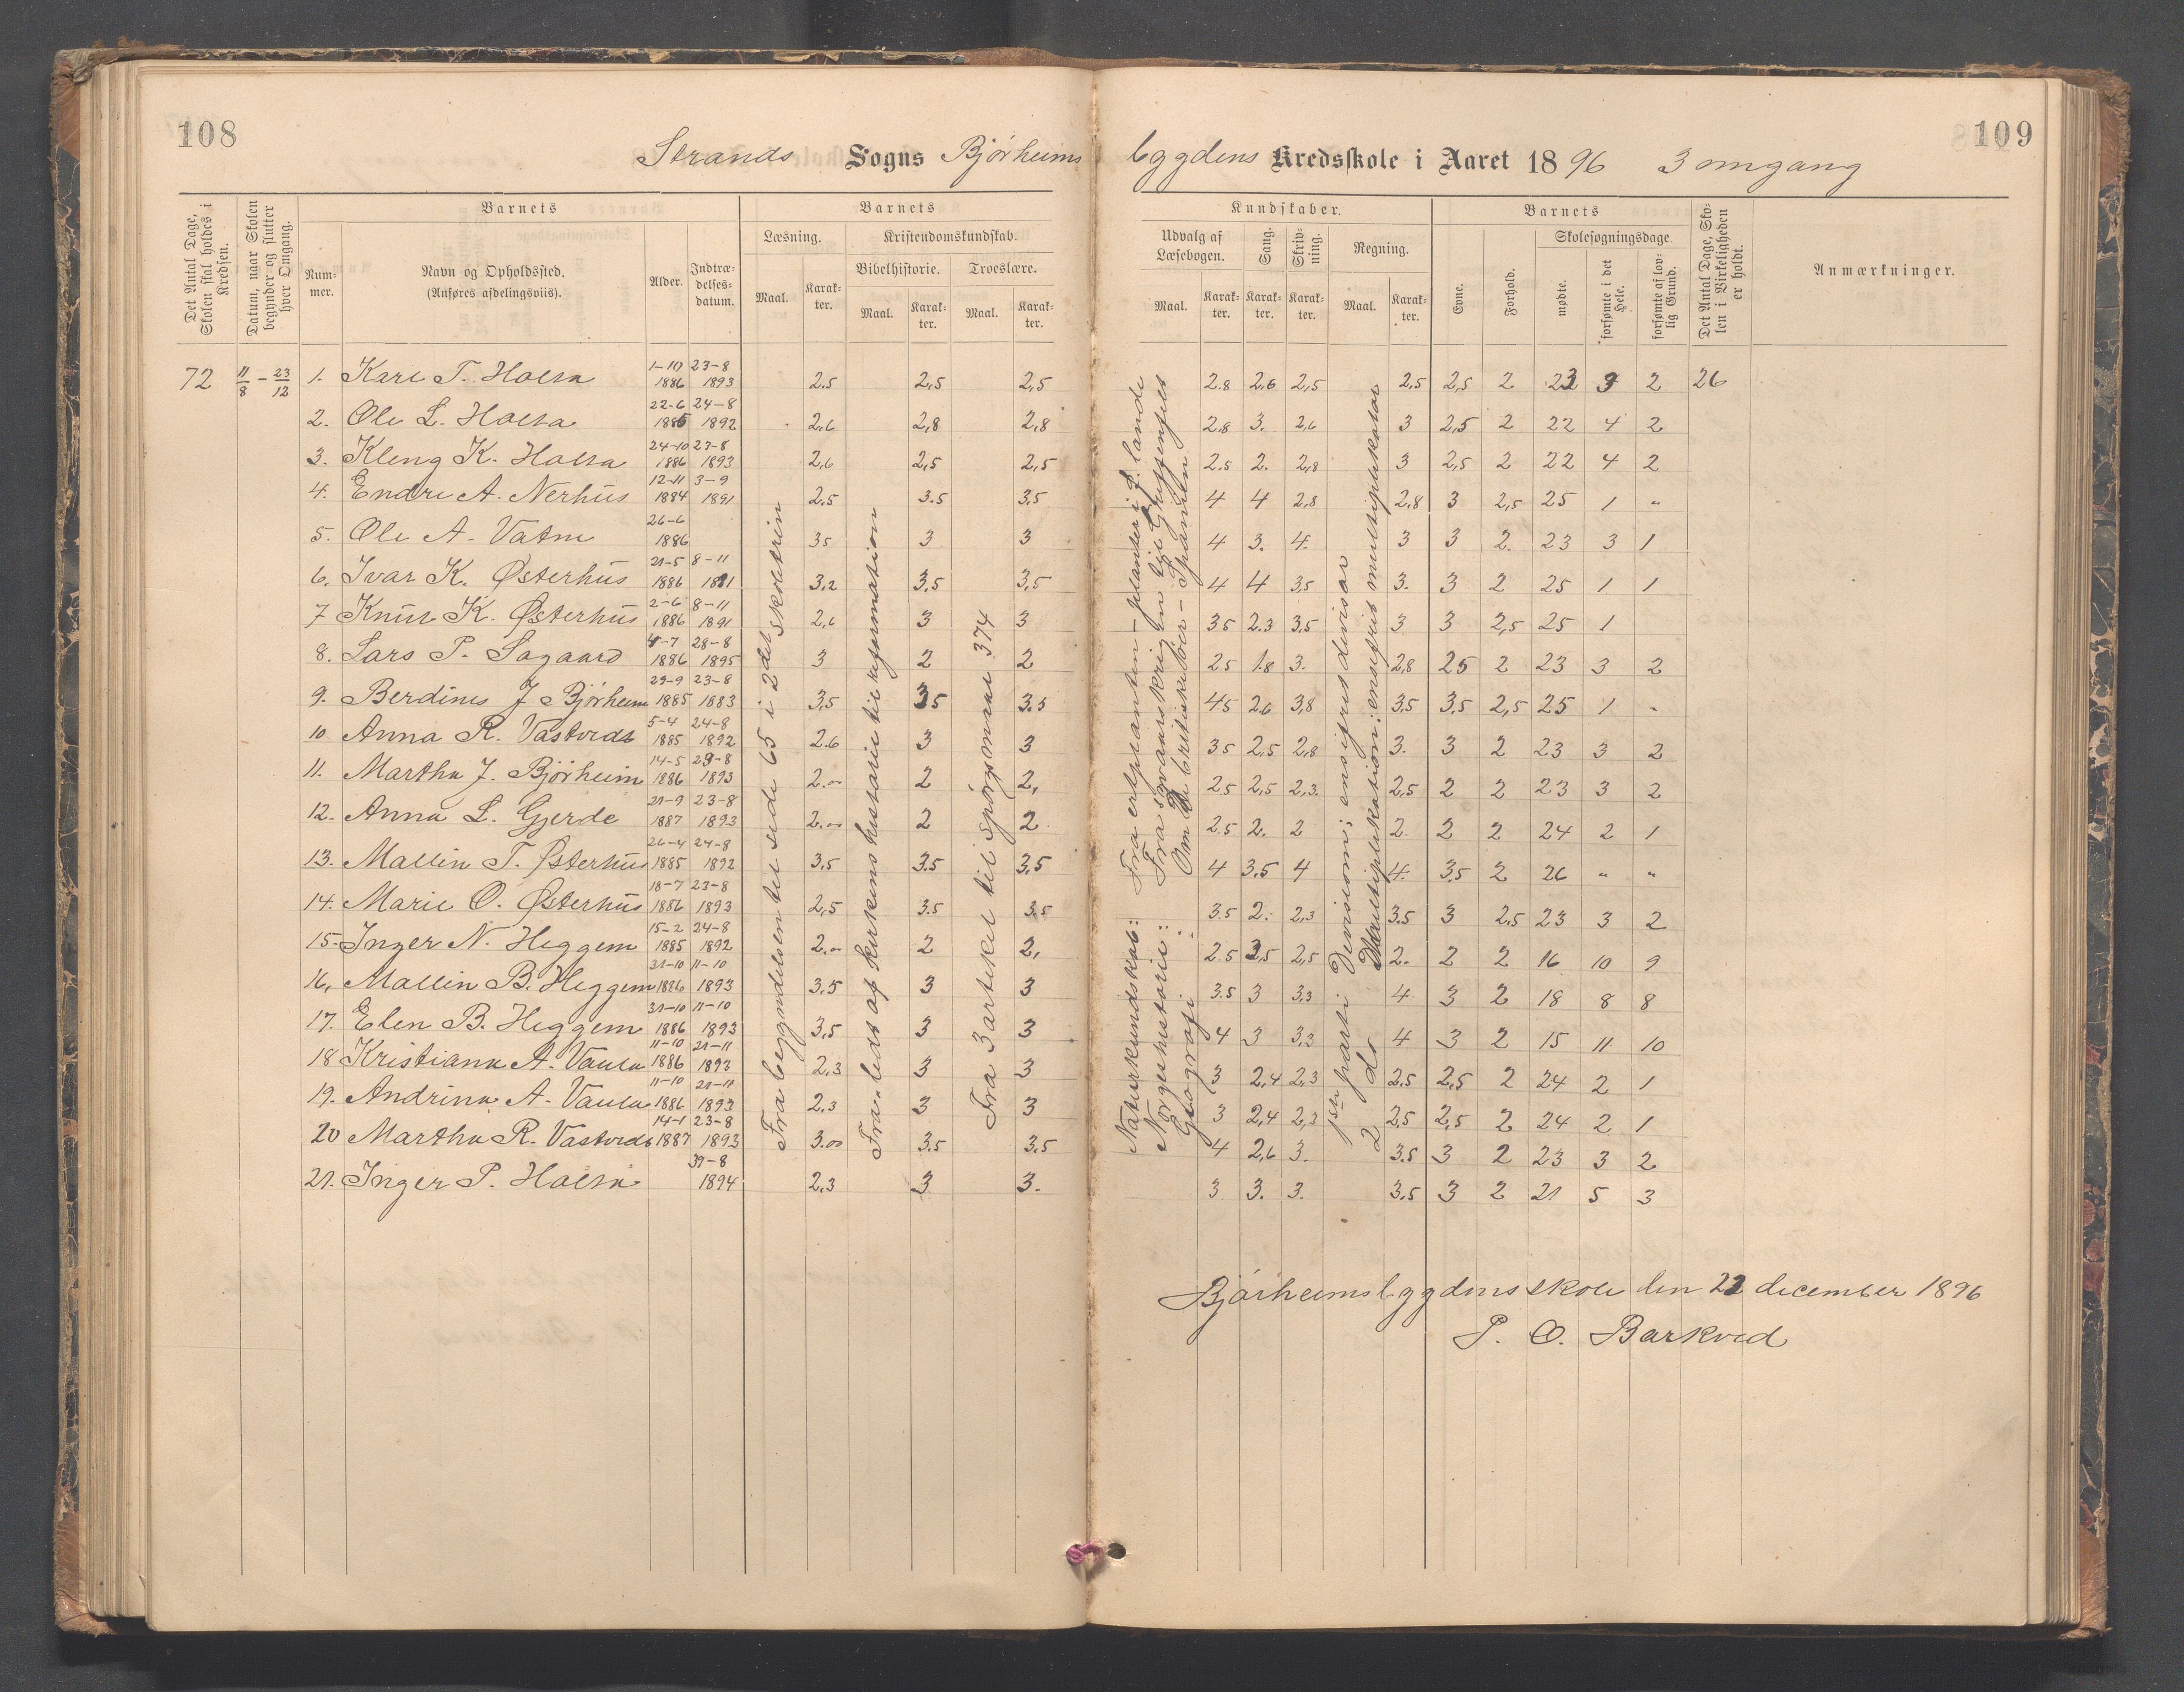 108
109
Strands Sogns Bjørheims
bygdens Kredsskole i Aaret 1896 3 omgang
Det Antal Dage, Skolen skal holdes i Kredsen.
Datum, naar Skolen begynder og slutter hver Omgang.
Barnets
Num-
mer.
Navn og Opholdssted.
(Anføres afdelingsviis).
Alder.
Indtræ-
delses-
datum.
Barnets
Læsning.
Maal.
Karak-
ter.
Kristendomskundskab.
Bibelhistorie.
Maal.
Karak-
ter.
Troeslære.
Maal.
Karak-
ter.
Kundskaber.
Udvalg af
Læsebogen.
Maal.
Karak-
ter.
Sang.
Karak-
ter.
Skriv-
ning.
Karak-
ter.
Regning.
Maal.
Karak-
ter.
Barnets
Evne.
Forhold.
Skolesøgningsdage.
mødte.
forsømte i det Hele.
forsømte af lov-
lig Grund.
Det Antal Dage, Sko-
len i Virkeligheden
er holdt.
Anmærkninger.
72 11/8 – 23/12
1. Karl T. Holta 1-10 1886 23-8 1893 2.5 2,5 2,5 2.8 2.6 2,5 2,5 2,5 2 23 3 2 26
2. Ole L. Holta 22-6 1885 24-8 1892 2,6 2,8 2,8 2.8 3. 2,6 3 2,5 2 22 4 2
3. Kleng K. Holta 24-10 1886 23-8 1893 2,6 2,5 2,5 2.5 2. 2,8 3 2,5 2 22 4 2
4. Endre A. Nerhus 12-11 1884 3-9 1891 2.5 3.5 3.5 4 4 2.8 2,8 3 2,5 25 1 "
5. Ole A. Vatne 26-6 1886 3.5 3 3 4 3. 4. 3 3 2. 23 3 1
6. Ivar K. Østerhus 21-5 1886 8-11 1891 3,2 3.5 3,5 4 4 3.5 3. 3 2 25 1 1
7 Knut K. Østerhus 2-6 1886 8-11 1891 2,6 3 3 3.5 2.3 3.5 3 3 2,5 25 1
8. Lars P. Sagaard 4-7 1886 28-8 1895 3 2 2 2.5 1.8 3. 2,8 2.5 2 23 3 2
9. Berdines J Bjørheim 29-9 1885 23-8 1883 3,5 3.5 3.5 4.5 2.6 3,8 3.5 3.5 2,5 25 1 -
10 Anna R. Vastvedt 5-4 1885 24-8 1892 2.6 3 3 3.5 2,5 2,8 3. 3 2 23 3 2
11. Martha J. Bjørheim 14-5 1886 23-8 1893 2.00 2 2, 2.5 2,5 2,3. 2,5 2 2 23 3 2
12. Anna L. Gjerde 21-9 1887 23-8 1893 2.00 2 2 2.5 2. 2 2. 2 2 24 2 1
13. Mallin T. Østerhus 26-4 1885 24-8 1892 3,5 3.5 3,5 4 3.5 4 4. 3.5 2 26 " "
14. Marie O. Østerhus 18-7 1886 23-8 1893 2,5 3.5 3.5 3.5 2. 2,3 3.5 3 2.5 23 3 2
15. Inger N. Heggem 15-2 1885 24-8 1892 2.00 2 2, 2.5 3,5 2,5 2. 2 2 16 10 9
16, Mallin B. Heggem 31-10 1886 11-10 1893 3.5 3 3 3.5 3 3,3 4 3 2 18 8 8
17. Elen B. Heggem 31-10 1886 11-10 1893 3,5 3 3 4 3 3,3 4 3 2 15 11. 10
18 Kristiana A. Vaula 11-10 1886 21-11 1893 2,3 3 3 3 2,4 2,3 2.5 2,5 2 24 2 1
19. Andrina A. Vaula 11-10 1886 21-11 1893 2.3 3 3 3 2,4 2,3 2,5 2,5 2 24 2 1
20 Martha R. Vastvedt 14-1 1887 23-8 1893 3.00 3.5 3.5 4 2,6 3. 3.5 3 2 23 3 2
21. Inger P. Holta 31-8 1894 2,3 3 3. 3 3. 3. 3.5 3 2 21 5 3
Fra begyndelsen til side 65 i 2 del skoletrin
Fra leds af kirkens historie til reformation
Fra 3 artikel til spørgsmaal 374
Naturkundskab: Fra erteplanten – planter i f. lande
Norgeshistorie: Fra svenskekrigen til Griffenfelt
Geografi: Om De britiske øer – Spanien
1ste parti. Division; ensifret divisor
2 do Multiplikation; ensifret multiplikator
Bjørheimsbygdens skole den 23 december 1896
P. O. Barkved